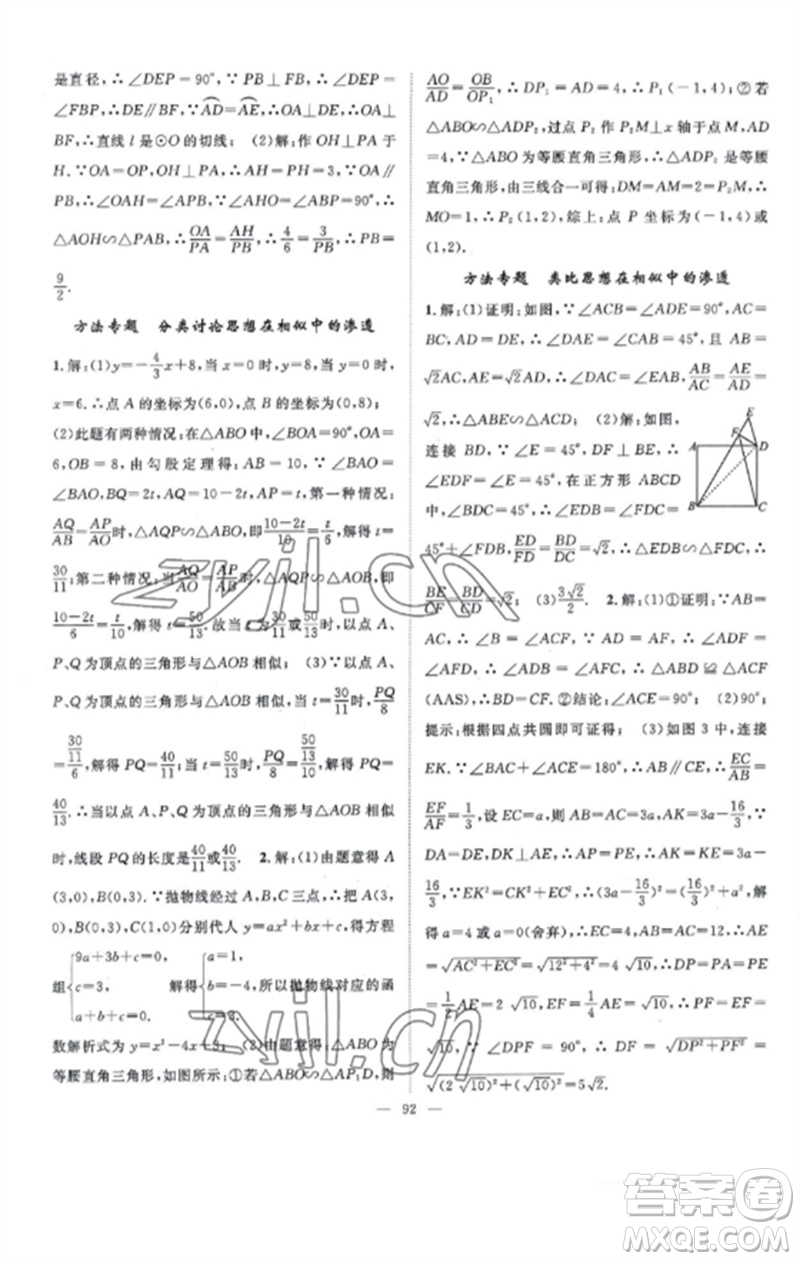 是直径，∴∠DEP＝90°，∵PB⊥FB，∴∠DEP＝
∠FBP，∴DE∥BF，∵AD＝AE，∴OA⊥DE，∴OA⊥
BF，∴直线 l 是⊙O 的切线；(2)解：作 OH⊥PA 于
H．∵OA＝OP，OH⊥PA，∴AH＝PH＝3．∵OA∥
PB，∴∠OAH＝∠APB，∵∠AHO＝∠ABP＝90°，∴
△AOH∽△PAB，∴OA/PA＝AH/PB，∴4/6＝3/PB，∴PB＝
9/2．
方法专题　分类讨论思想在相似中的渗透
1.解：(1)y＝－4/3x＋8，当 x＝0 时，y＝8，当 y＝0 时，
x＝6.∴点 A 的坐标为(6,0)，点 B 的坐标为(0,8)；
(2)此题有两种情况：在△ABO 中，∠BOA＝90°，OA＝
6，OB＝8，由勾股定理得：AB＝10，∵∠BAO＝
∠BAO，BQ＝2t，AQ＝10－2t，AP＝t，第一种情况：
AQ/AB＝AP/AO时，△AQP∽△ABO，即(10－2t)/10＝t/6，解得 t＝
30/11；第二种情况：当AQ/AO＝AP/AB时，△AQP∽△AOB，即
(10－2t)/6＝t/10，解得 t＝50/13．故当 t 为30/11或50/13时，以点 A、
P、Q 为顶点的三角形与△AOB 相似；(3)∵以点 A、
P、Q 为顶点的三角形与△AOB 相似，当 t＝30/11时，PQ/8＝
(30/11)/6，解得 PQ＝40/11；当 t＝50/13时，PQ/8＝(50/13)/10，解得 PQ＝
40/13．∴当以点 A、P、Q 为顶点的三角形与△AOB 相似
时，线段 PQ 的长度是40/11或40/13．　2.解：(1)由题意得 A
(3,0)，B(0,3)．∵抛物线经过 A、B、C 三点，∴把 A(3，
0)，B(0,3)，C(1,0)分别代人 y＝ax²＋bx＋c，得方程
组{9a＋3b＋c＝0，c＝3，a＋b＋c＝0．　解得{a＝1，b＝－4，c＝3，所以抛物线对应的函
数解析式为 y＝x²－4x＋3；(2)由题意得：△ABO 为
等腰直角三角形，如图所示：①若△ABO∽△AP₁D，则
AO/AD＝OB/OP₁，∴DP₁＝AD＝4，∴P₁(－1,4)；②若
△ABO∽△ADP₂，过点 P₂ 作 P₂M⊥x 轴于点 M，AD＝
4，∵△ABO 为等腰直角三角形，∴△ADP₂ 是等腰
直角三角形，由三线合一可得：DM＝AM＝2＝P₂M，∴
MO＝1，∴P₂(1,2)，综上：点 P 坐标为(－1,4)或
(1,2)．
方法专题　类比思想在相似中的渗透
1.解：(1)证明：如图，∵∠ACB＝∠ADE＝90°，AC＝
BC，AD＝DE，∴∠BAC＝∠DAE＝45°，且 AB＝
√2AC，AE＝√2AD，∴∠DAC＝∠EAB，AB/AC＝AE/AD＝
√2，∴△ABE∽△ACD；　(2)解：如图，
连接 BD，∵∠E＝45°，DF⊥BE，∴
∠EDF＝∠E＝45°，在正方形 ABCD
中，∠BDC＝45°，∴∠EDB＝∠FDC＝
45°＋∠FDB，ED/FD＝BD/DC＝√2，∴△EDB∽△FDC，∴
BE/CF＝BD/CD＝√2；　(3)3√2/2．　2.解：(1)①证明：∵AB＝
AC，∴∠B＝∠ACF，∵DF∥AC，∴∠ACF＝∠BFD＝
∠AFD，∴∠ADB＝∠AFC，∴△ABD≌△ACF
(AAS)，∴BD＝CF．②结论：∠ACE＝90°；(2)90°；
提示：根据四点共圆即可证得；　(3)如图 3 中，连接
EK．∵∠BAC＋∠ACE＝180°，∴AB∥CE，∴EC/AB＝
EF/AF＝1/3，设 EC＝a，则 AB＝AC＝3a，AK＝3a－16/3，∵
DA＝DE，DK⊥AE，∴AP＝PE，∴AK＝KE＝3a－
16/3，∵EK²＝CK²＋EC²，∴(3a－16/3)²＝(16/3)²＋a²，解
得 a＝4 或 a＝0(舍弃)，∴EC＝4，AB＝AC＝12，∴AE
＝√(AC²＋EC²)＝√(12²＋4²)＝4√10，∴DP＝PA＝PE
＝1/2AE＝2√10，EF＝1/4AE＝√10，∴PF＝EF＝
√10，∵∠DPF＝90°，∴DF＝√(DP²＋PF²)＝
√((2√10)²＋(√10)²)＝5√2．
A
B
C
D
E
F
— 92 —
zyjl.cn
zyjl.cn
答案卷
MXQE.COM